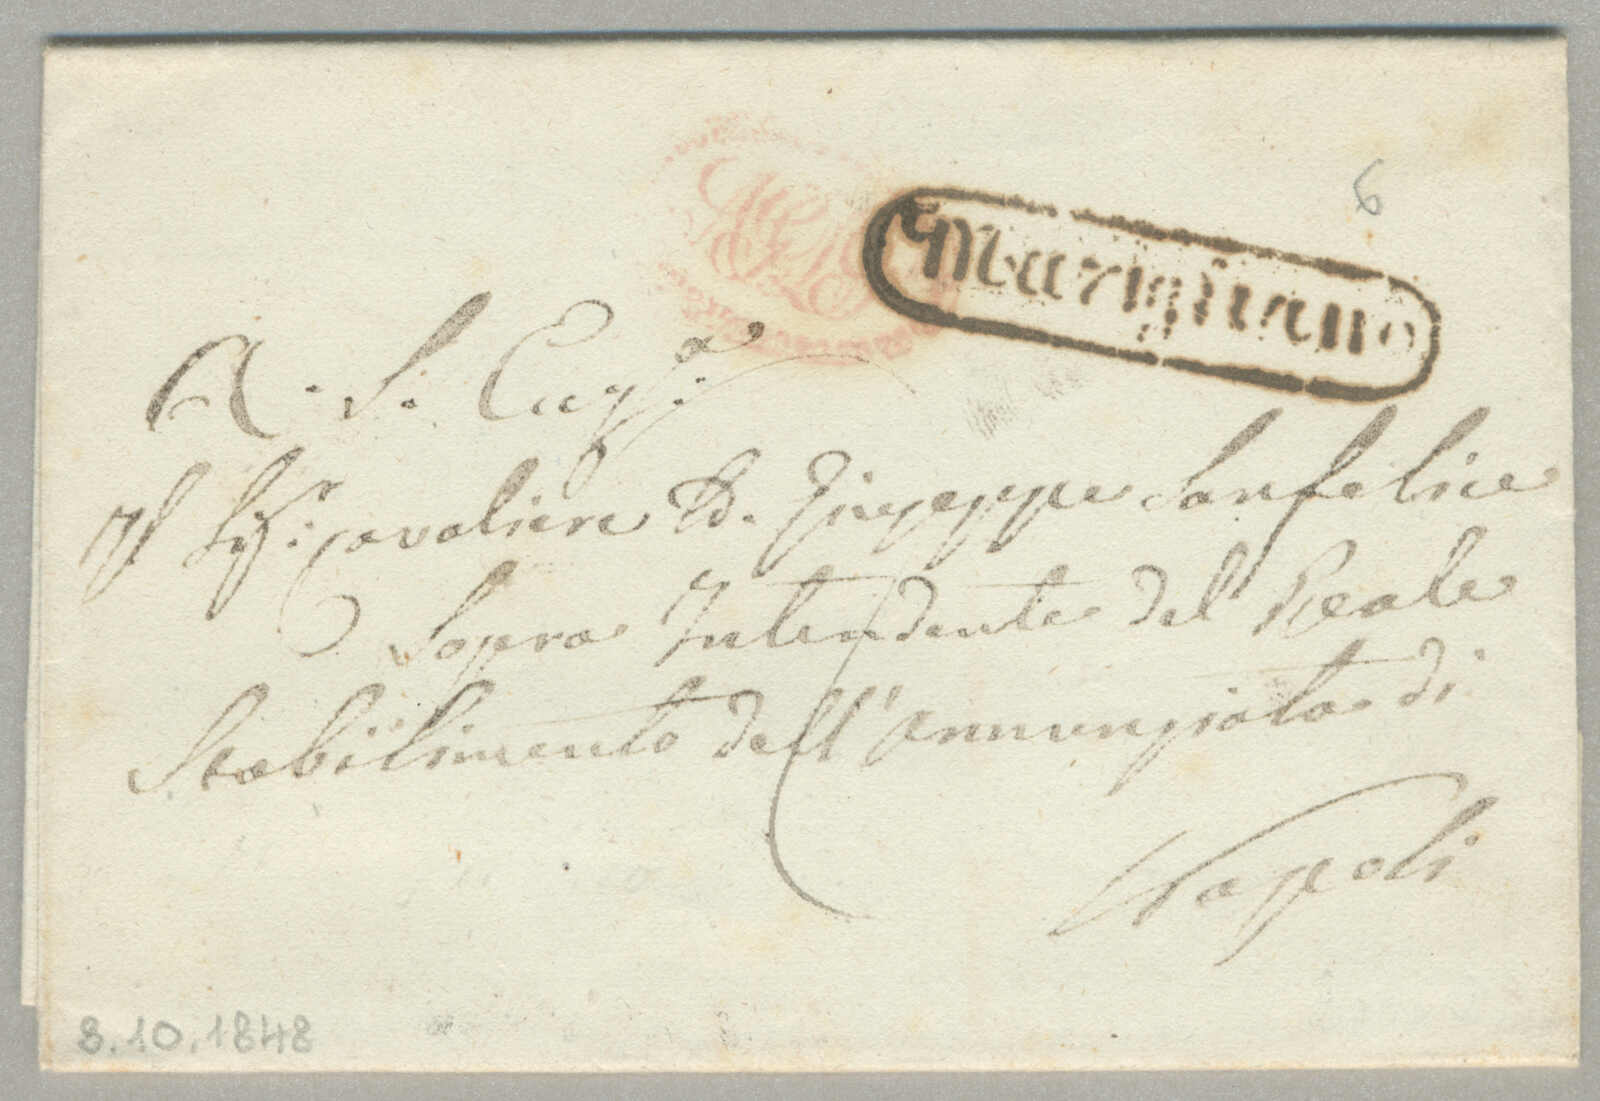 6
Marigliano
A. S. Ecc.ª
Il Sig.r Cavaliere D. Giuseppe Sanfelice
Sopra Intendente del Reale
Stabilimento dell'Annunziata di
Napoli
8.10.1848